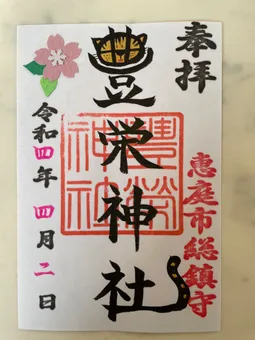 奉拝
恵庭市総鎮守
豊栄神社
豊榮神社
令和四年 四月 二日